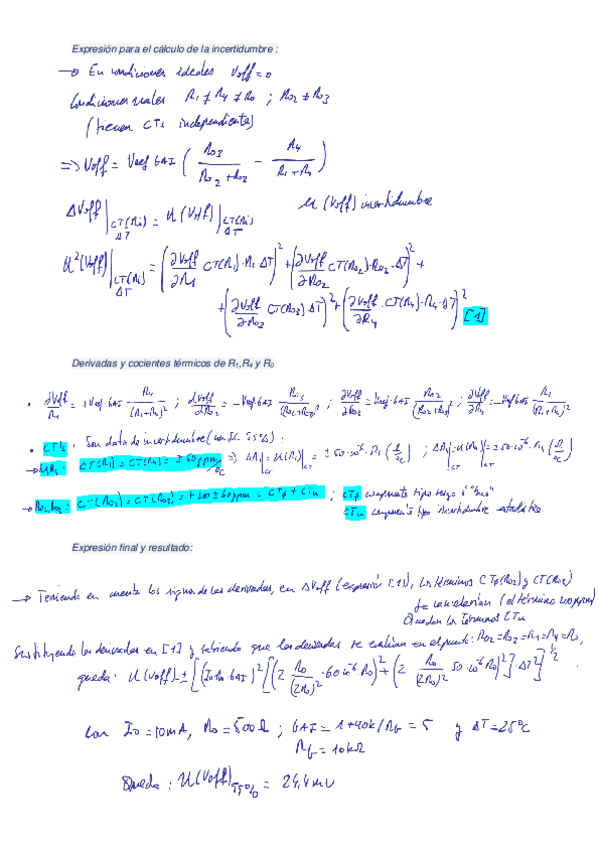 Expresión para el cálculo de la incertidumbre :
→ En condiciones ideales Voff = 0
Condiciones reales R1 ≠ R4 ≠ R0 ; R02 ≠ R03
(tienen CTs independientes)
=> Voff = Vref GAI ( R03 / (R02 + R03) − R4 / (R1 + R4) )
ΔVoff | CT(Ri) ΔT = u (Voff) | CT(Ri) ΔT u (Voff) incertidumbre
u²(Voff) | CT(Ri) ΔT = (∂Voff/∂R1 CT(R1)·R1·ΔT)² + (∂Voff/∂R02 CT(R02)·R02·ΔT)² +
+ (∂Voff/∂R03 CT(R03) ΔT)² + (∂Voff/∂R4 · CT(R4)·R4·ΔT)² [1]
Derivadas y cocientes térmicos de R1,R4 y R0
• ∂Voff/R1 = +Vref GAI R4/(R1+R4)² ; ∂Voff/∂R02 = −Vref GAI R03/(R02+R03)² ; ∂Voff/∂R03 = Vref·GAI R02/(R02+R03)² ; ∂Voff/∂R4 = −Vref GAI R1/(R1+R4)²
• CTs · Son datos de incertidumbre (con 99%) :
CT(R1) = CT(R4) = ± 50 ppm/ºC => ΔR1|CT = u(R1)|CT = ± 50·10⁻⁶·R1 (Ω/ºC) ; ΔR4|CT = u(R4)|CT = ± 50·10⁻⁶·R4 (Ω/ºC)
→ R02, R03 : CT(R02) = CT(R03) = + 200 ± 60 ppm = CTp + CTu ; CTp componente tipo sesgo ó
CTu componente tipo incertidumbre estadístico
Expresión final y resultado:
→ Teniendo en cuenta los signos de las derivadas, en ΔVoff (expresión [1]), los términos CTp(R02) y CT(R03)
se cancelarían (el término 200ppm)
Quedan los términos CTu
Sustituyendo las derivadas en [1] y sabiendo que las derivadas se evalúan en el punto: R02=R03=R1=R4=R0,
queda: u(Voff) = ± [(I0·R0·GAI)² [(2 R0/(2R0)² ·60·10⁻⁶ R0)² + (2 R0/(2R0)² 50·10⁻⁶ R0)²]·ΔT²]^1/2
Con I0 = 10mA, R0 = 500Ω ; GAI = 1 + 40k/RG = 5 y ΔT = 25ºC
RG = 10kΩ
Queda : u(Voff)99% = 24,4 mV